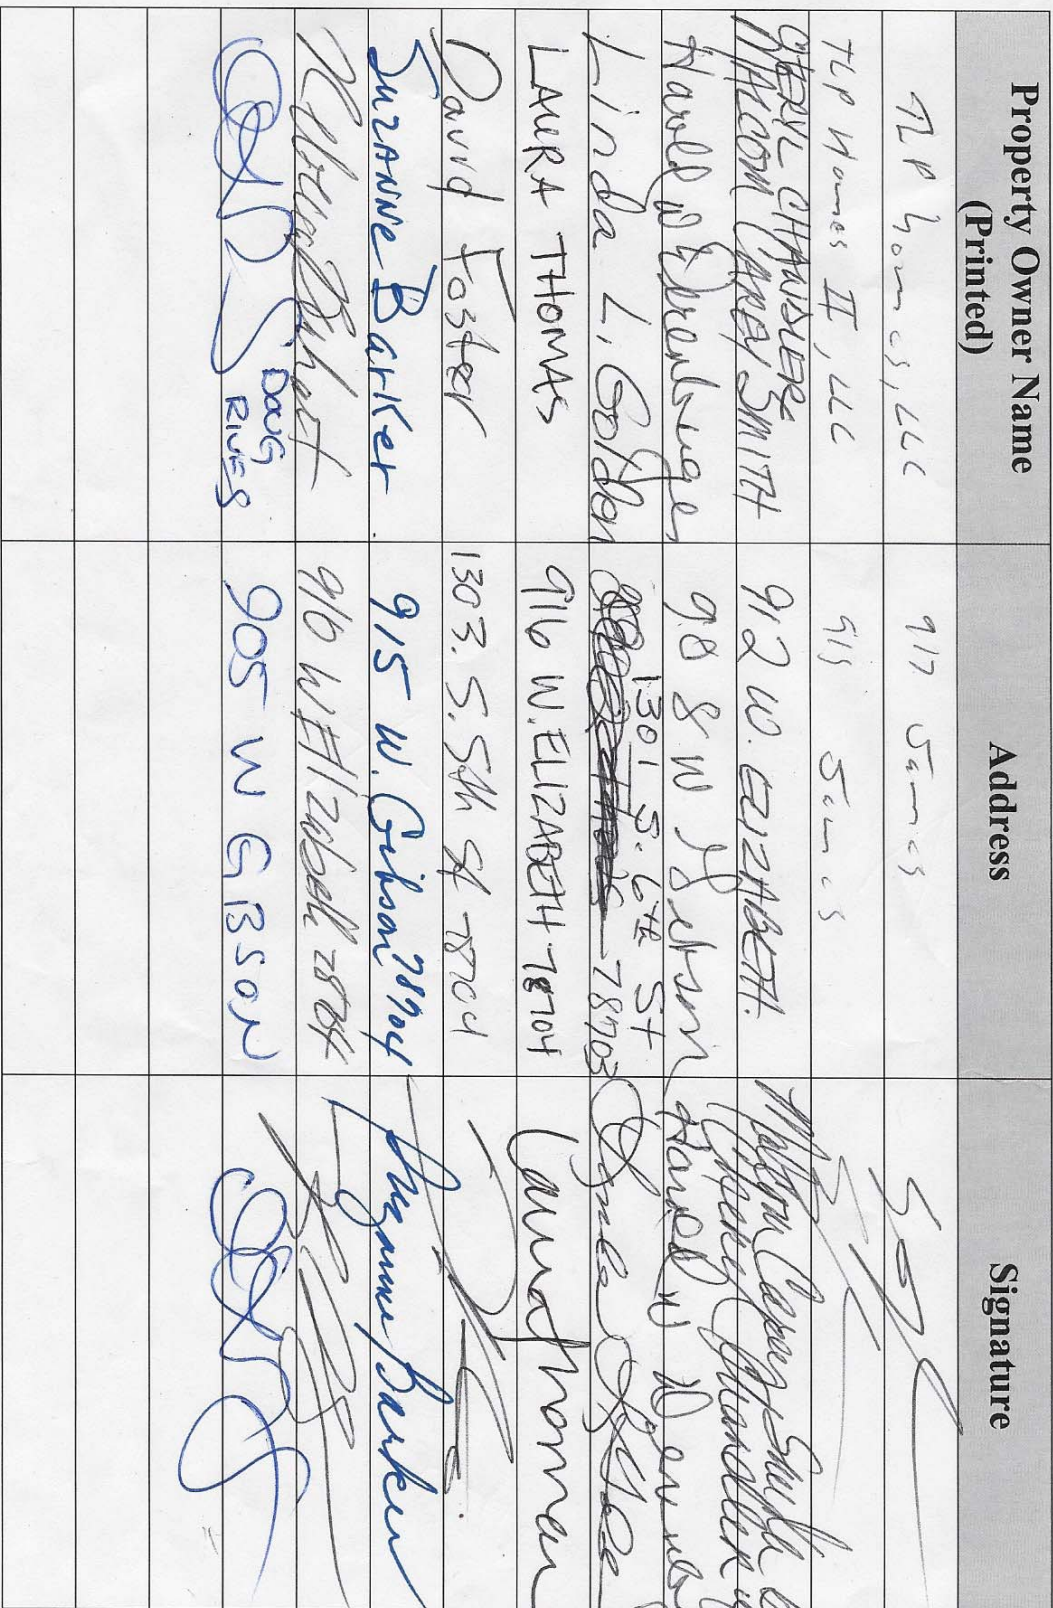 Property Owner Name
(Printed)
Address
Signature
TLP Homes, LLC
917 James
TLP Homes II, LLC
919 James
CHERYL CHANDLER &
MALCOM CANEY SMITH
912 W. ELIZABETH.
Harold W
908 W
Harold W
Linda L. Golden
1301 S. 6th St
78703
LAURA THOMAS
916 W. ELIZABETH 78704
Laura Thomas
David Foster
1303. S. 5th St 78704
Suzanne Barker.
915 W. Gibson 78704
Suzanne Barker
910 W Elizabeth 78704
DOUG
RIVES
905 W GBSON